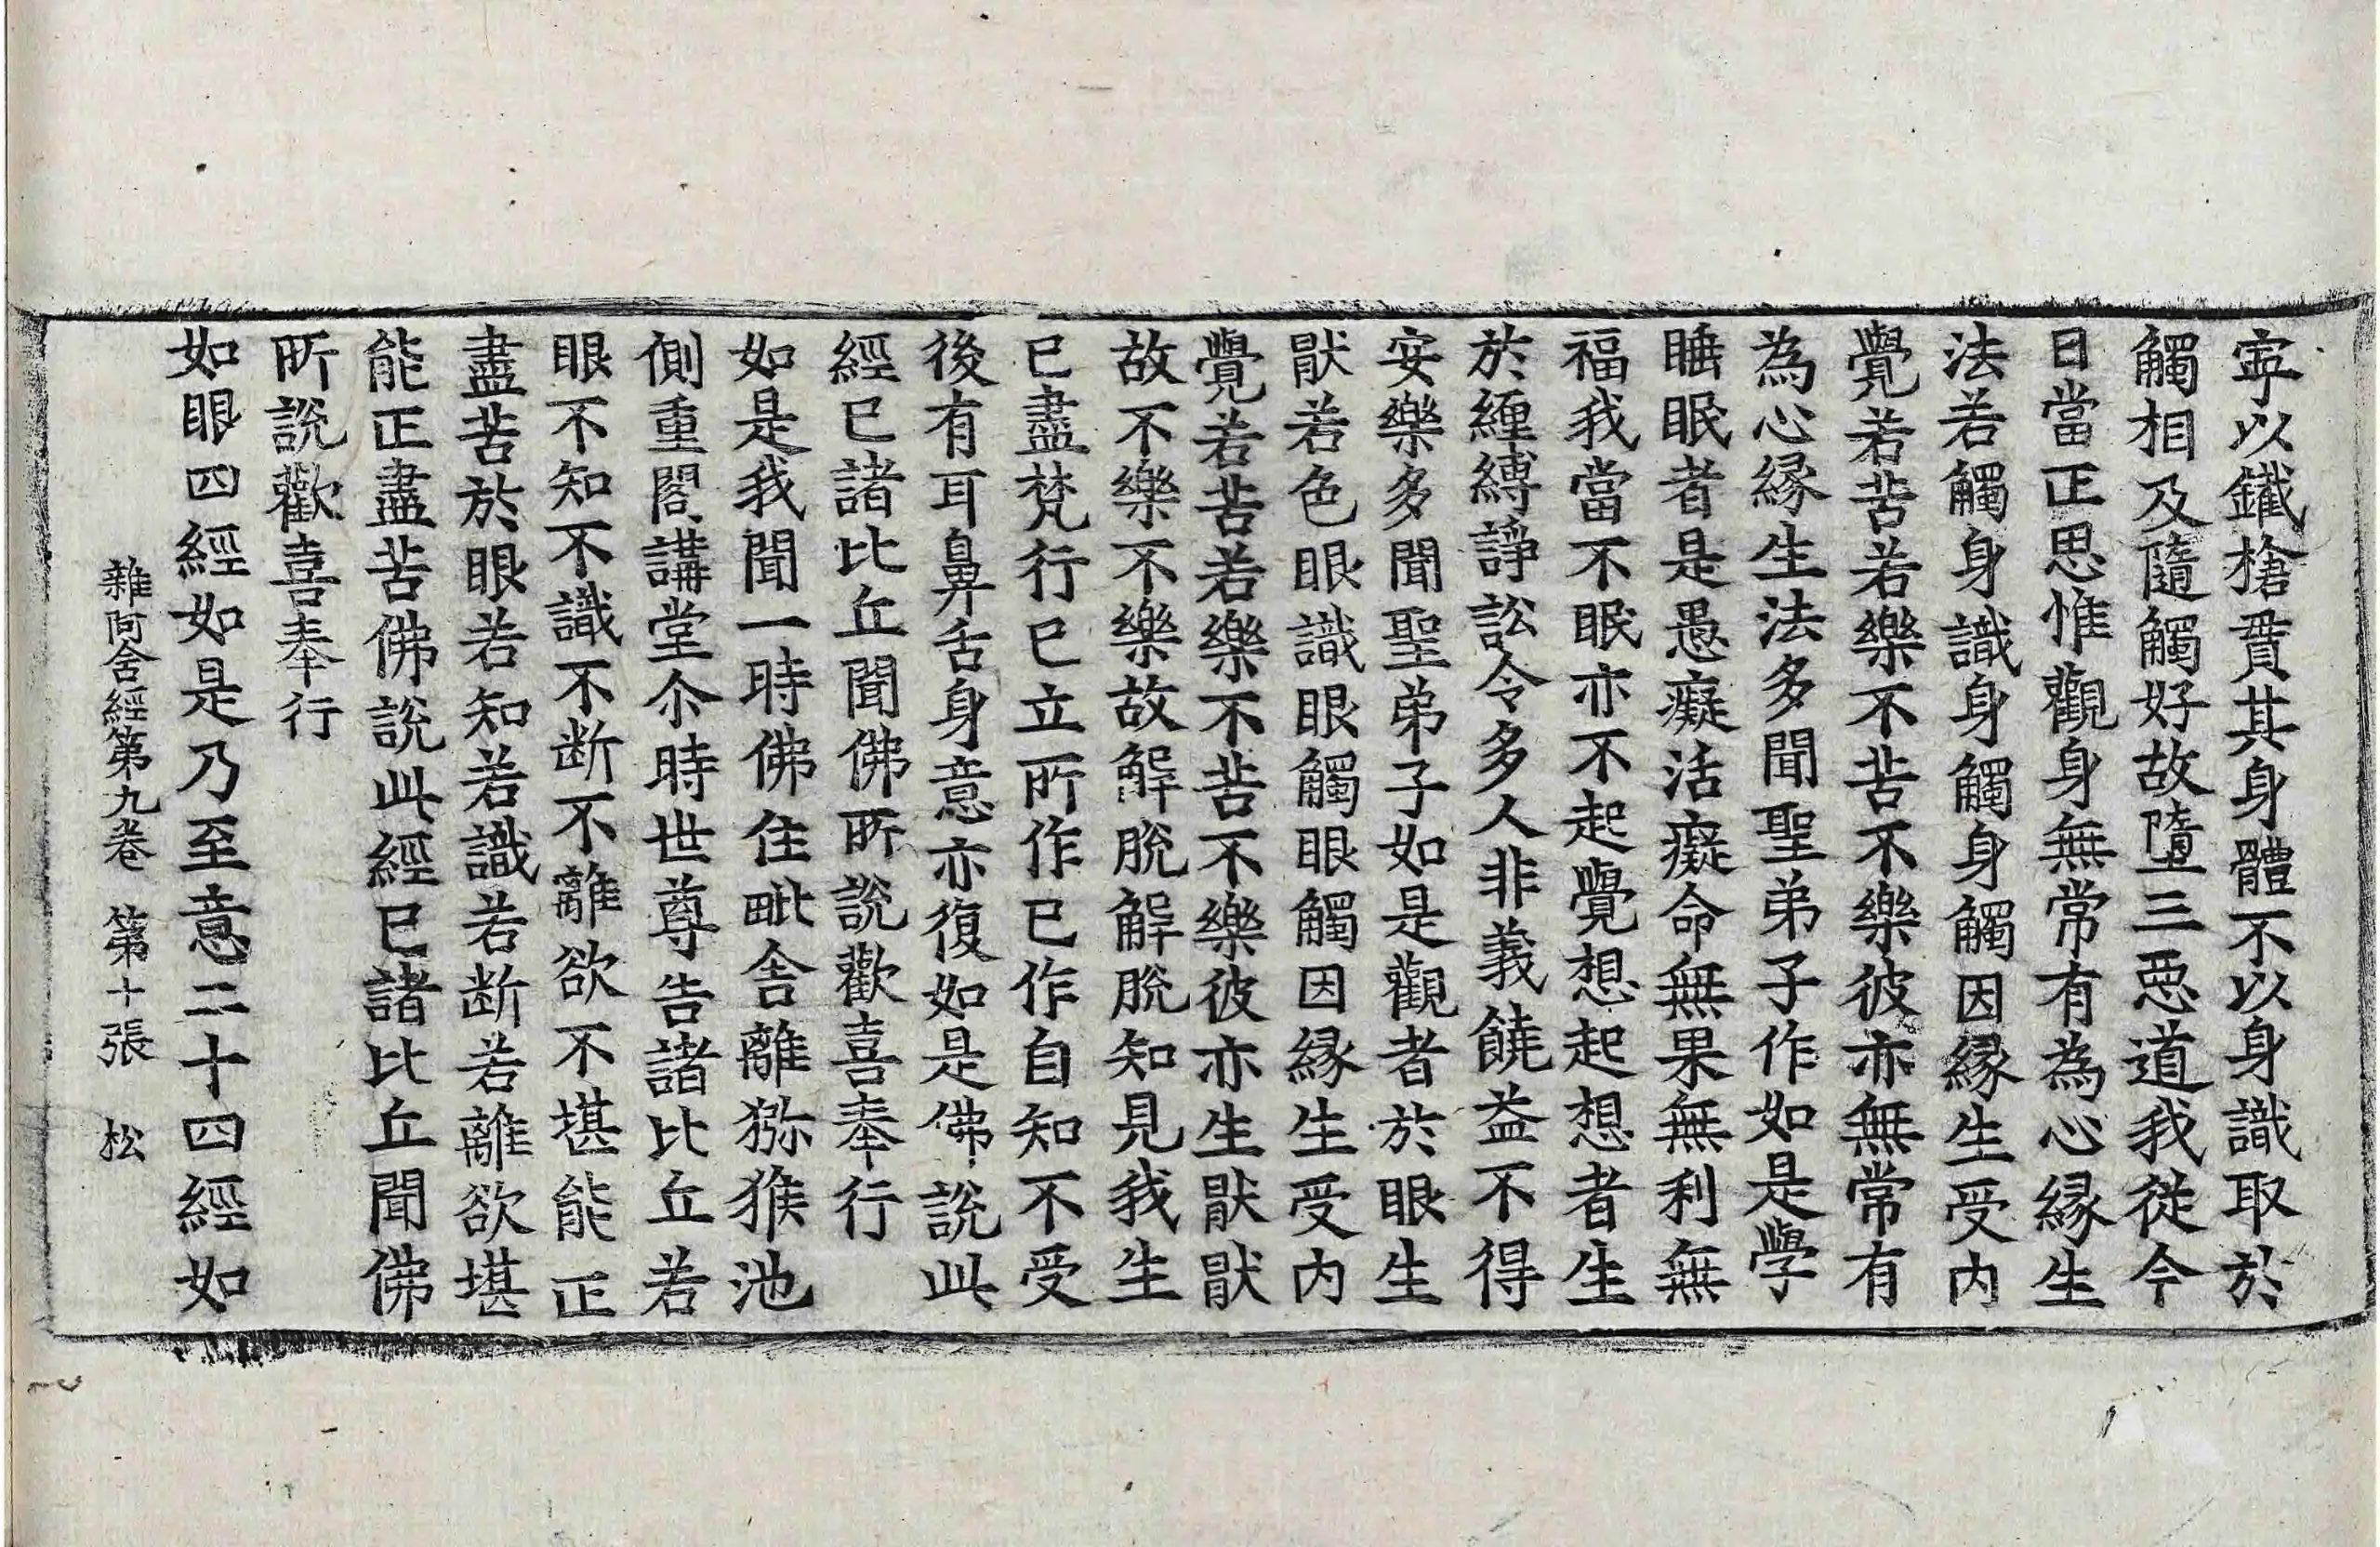 寧以鐵槍貫其身體不以身識取於
觸相及隨觸好故墮三惡道我從今
日當正思惟觀身無常有為心緣生
法若觸身識身觸身觸因緣生受內
覺若苦若樂不苦不樂彼亦無常有
為心緣生法多聞聖弟子作如是學
睡眠者是愚癡活癡命無果無利無
福我當不眠亦不起覺想起想者生
於纏縛諍訟令多人非義饒益不得
安樂多聞聖弟子如是觀者於眼生
猒若色眼識眼觸眼觸因緣生受內
覺若苦若樂不苦不樂彼亦生猒猒
故不樂不樂故解脫解脫知見我生
已盡梵行已立所作已作自知不受
後有耳鼻舌身意亦復如是佛說此
經已諸比丘聞佛所說歡喜奉行
如是我聞一時佛住毗舍離獼猴池
側重閣講堂尒時世尊告諸比丘若
眼不知不識不断不離欲不堪能正
盡苦於眼若知若識若断若離欲堪
能正盡苦佛說此經已諸比丘聞佛
所說歡喜奉行
如眼四經如是乃至意二十四經如
雜阿含經第九卷 第十張 松